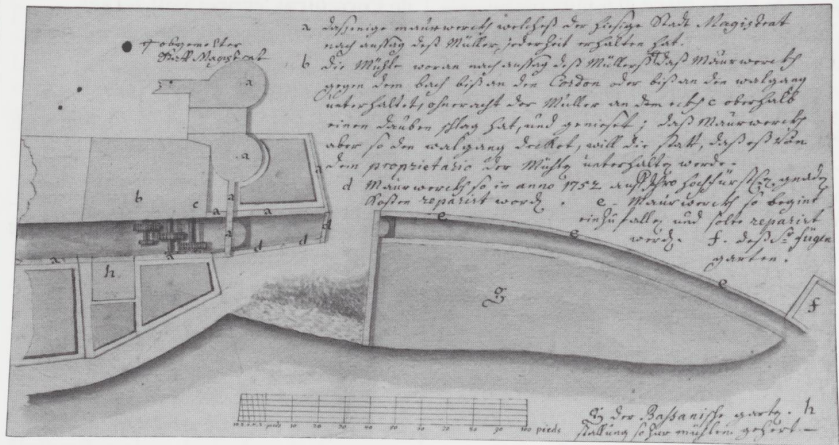 a dasjenige maurwerckh welches der hiesige Statt Magistrat
nach aussag deß Müller, jederzeit erhalten hat.
b die Mühle woran nach aussag deß Müllers daß Maurwerckh
gegen dem bach biß an den Cordon oder biß an den walgang
unterhaltet, ohneracht der Müller an dem eckh c oberhalb
einen dauben schlag hat, und genieset; daß Maurwerckh
aber so den walgang decket, will die statt, daß es von
dem proprietario der Mühle unterhalten werde.
d Maurwerckh so in anno 1752 auf Ihro hochfürstl: gnaden
Kosten reparirt worden. e - Maurwerckh so begint
einzufallen und solte reparirt
werden. f. deß
garten.
obgemelter
Statt Magistrat
a
a
a
b
c
a
a
a
a
d
d
d
a
h
a
e
e
e
g
f
piede
10
20
30
40
50
60
70
80
90
100
piede
g der Bassanische garten. h
stallung so zur mühlen gehört